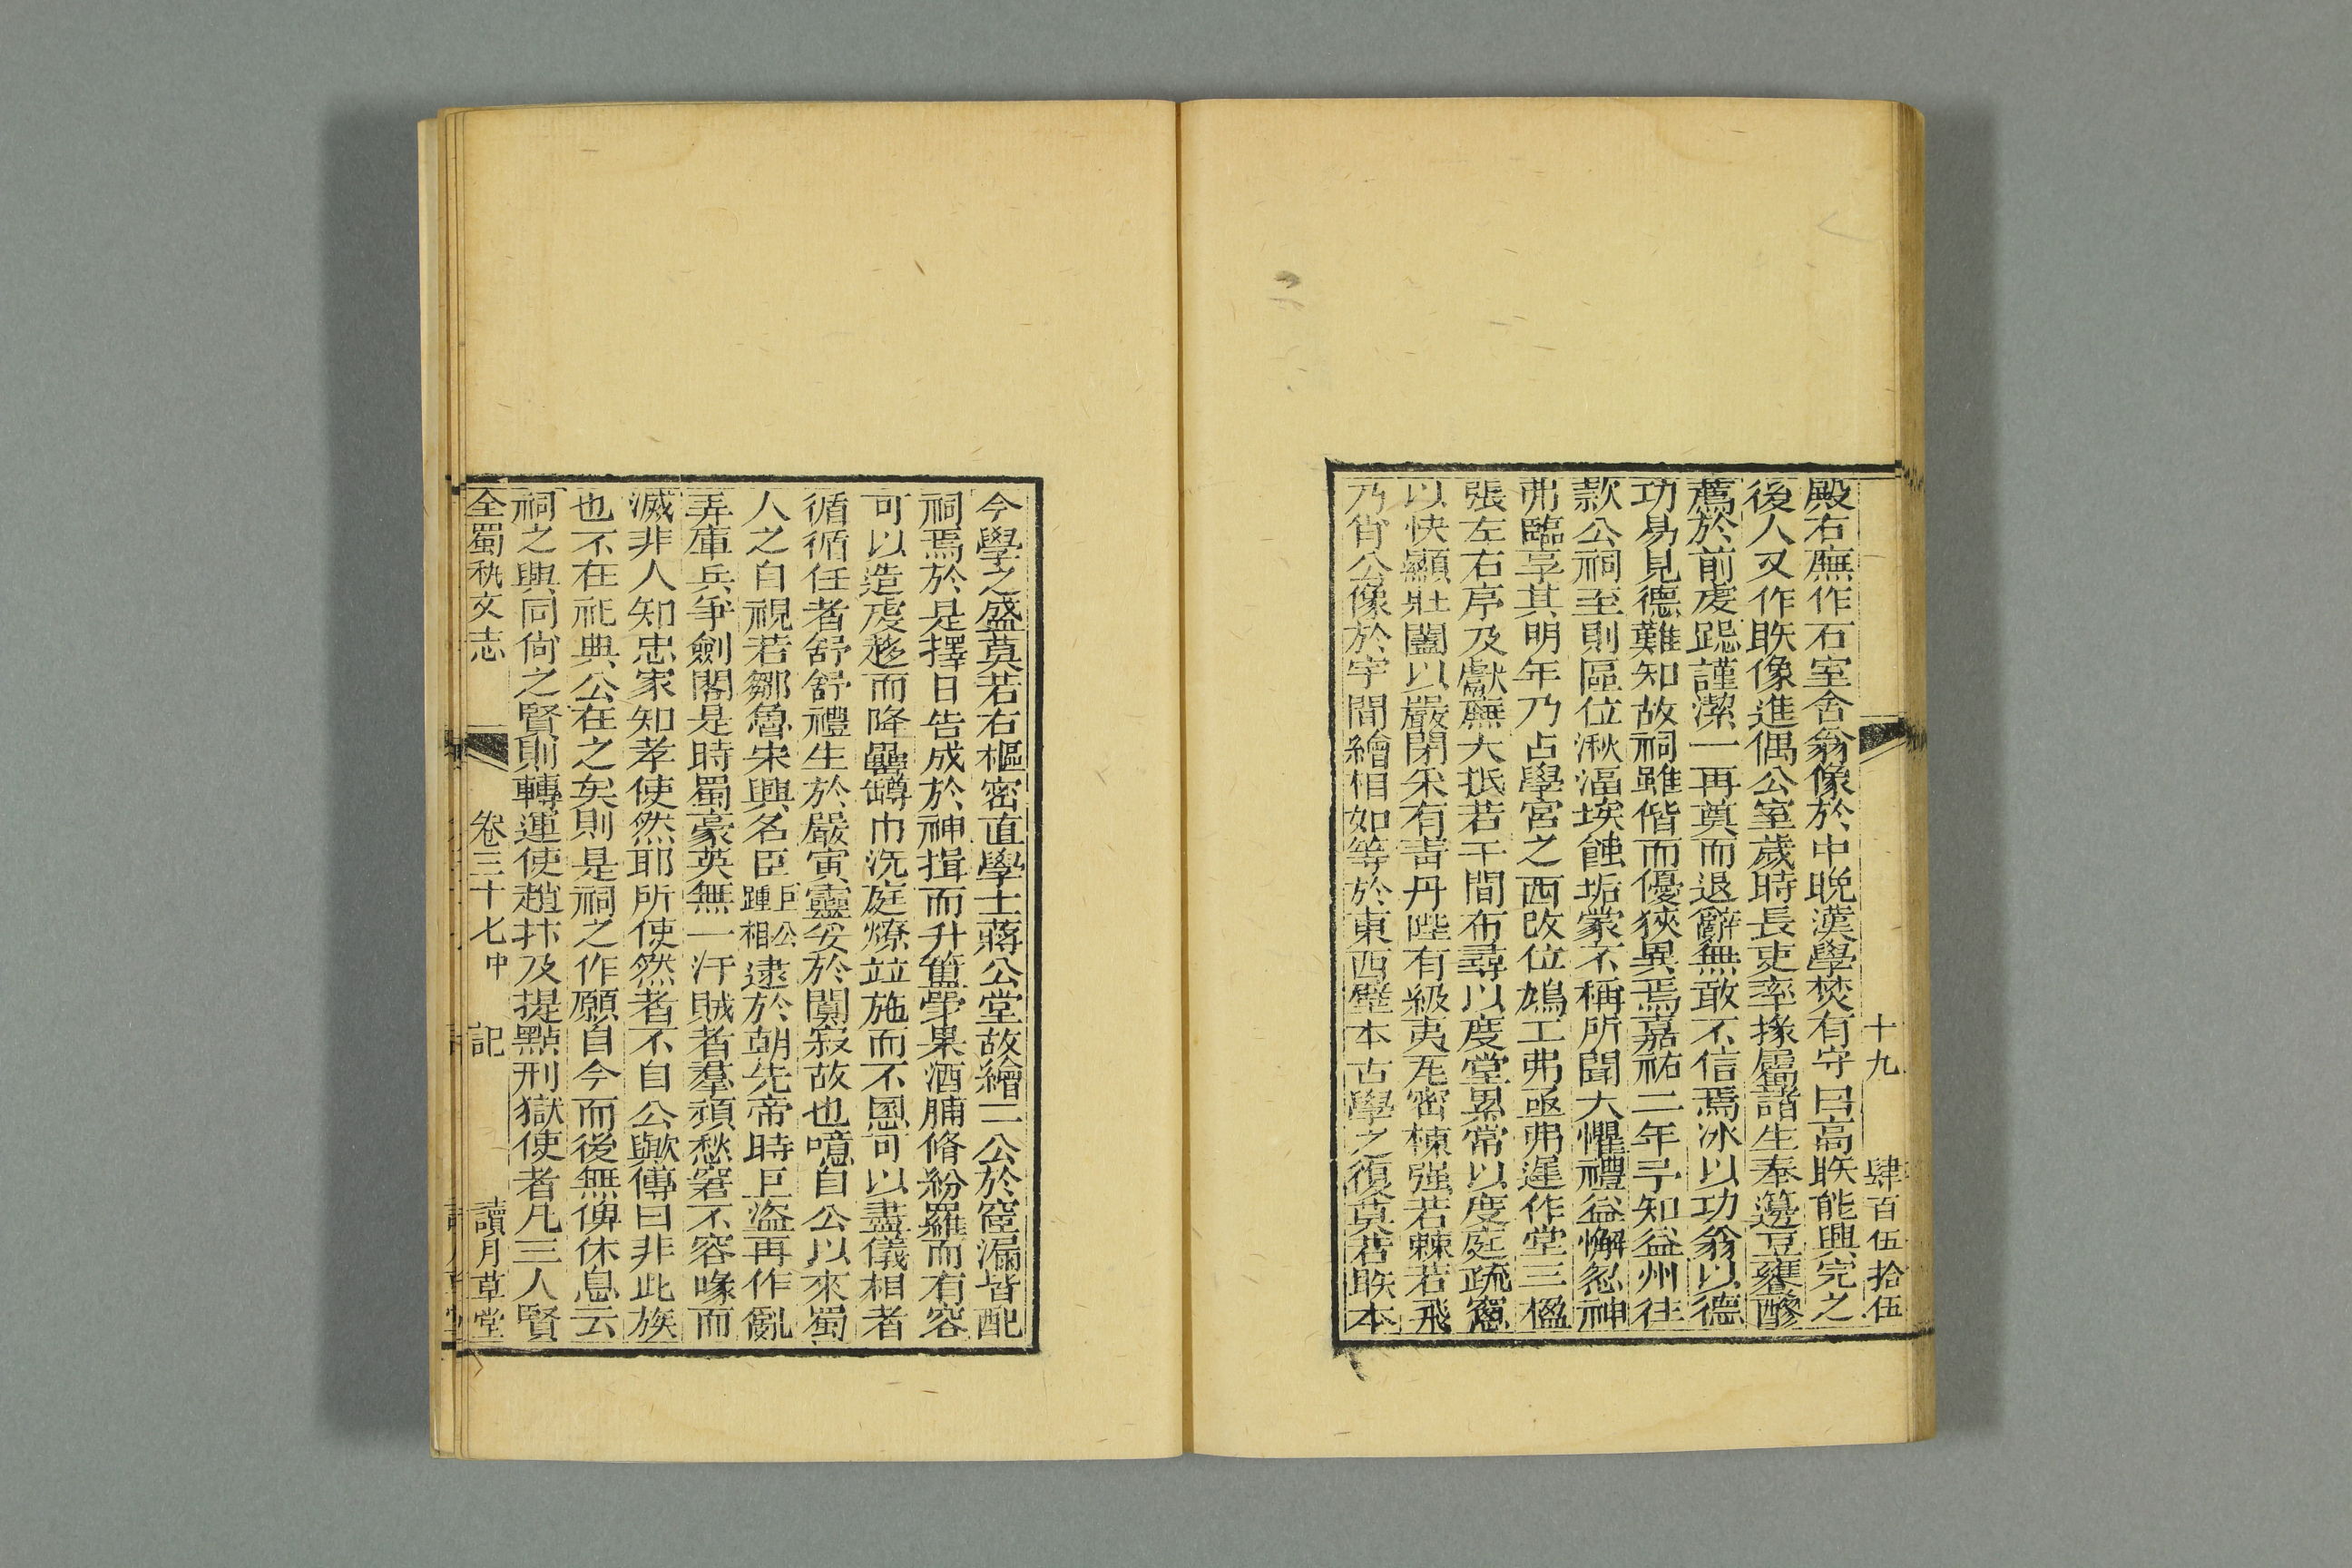 十九 肆百伍拾伍
殿右廡作石室舍翁像於中晚漢學焚有守曰高䀢能興完之
後人又作䀢像進偶公室歲時長吏率掾屬諸生奉籩豆甕醪
薦於前虔跽謹潔一再奠而退辭無敢不信焉冰以功翁以德
功易見德難知故祠雖偕而優狹異焉嘉祐二年予知益州往
款公祠至則區位湫湢埃蝕垢蒙不稱所聞大懼禮益懈忽神
弗臨享其明年乃占學宮之西改位鳩工弗亟弗遲作堂三楹
張左右序及獻廡大抵若干間布尋以度堂累常以度庭疏窻
以快顯壯闔以嚴閉采有青丹陛有級夷瓦密棟强若棘若飛
乃肖公像於宇間繪相如等於東西壁本古學之復莫若䀢本
今學之盛莫若右樞密直學士蔣公堂故繪二公於窔漏皆配
祠焉於是擇日告成於神揖而升簠斝果酒脯脩紛羅而有容
可以造虔趍而降罍罇巾洗庭燎竝施而不慁可以盡儀相者
循循任者舒舒禮生於嚴寅靈妥於闃寂故也噫自公以來蜀
人之自視若鄒魯宋興名臣巨公踵相逮於朝先帝時巨盜再作亂
弄庫兵爭劍閣是時蜀豪英無一汙賊者羣頑愁窘不容喙而
滅非人知忠家知孝使然耶所使然者不自公歟傳曰非此族
也不在祀典公在之矣則是祠之作願自今而後無俾休息云
祠之興同尙之賢則轉運使趙抃及提點刑獄使者凡三人賢
全蜀秇文志 卷三十七中 記 讀月草堂